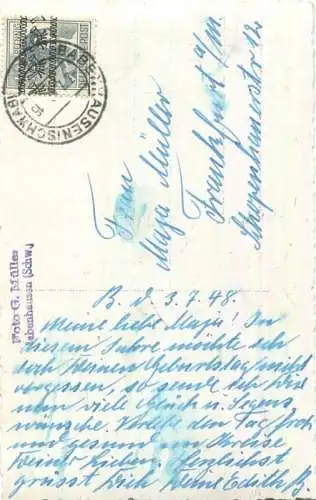 BABENHAUSEN (SCHWAB)
Frau
Maja Müller
Frankfurt a/M.
Schopenhauerstr 12
Foto G. Müller
Babenhausen (Schw.)
B. d. 3.7.48.
Meine liebe Maja! In
diesem Jahre möchte ich
doch Deinen Geburtstag nicht
vergessen, so sende ich Dir
nun viele Glück u. Segens
wünsche. Verlebe den Tag froh
und gesund im Kreise
Deiner Lieben. Herzlichst
grüsst Dich Deine Edith